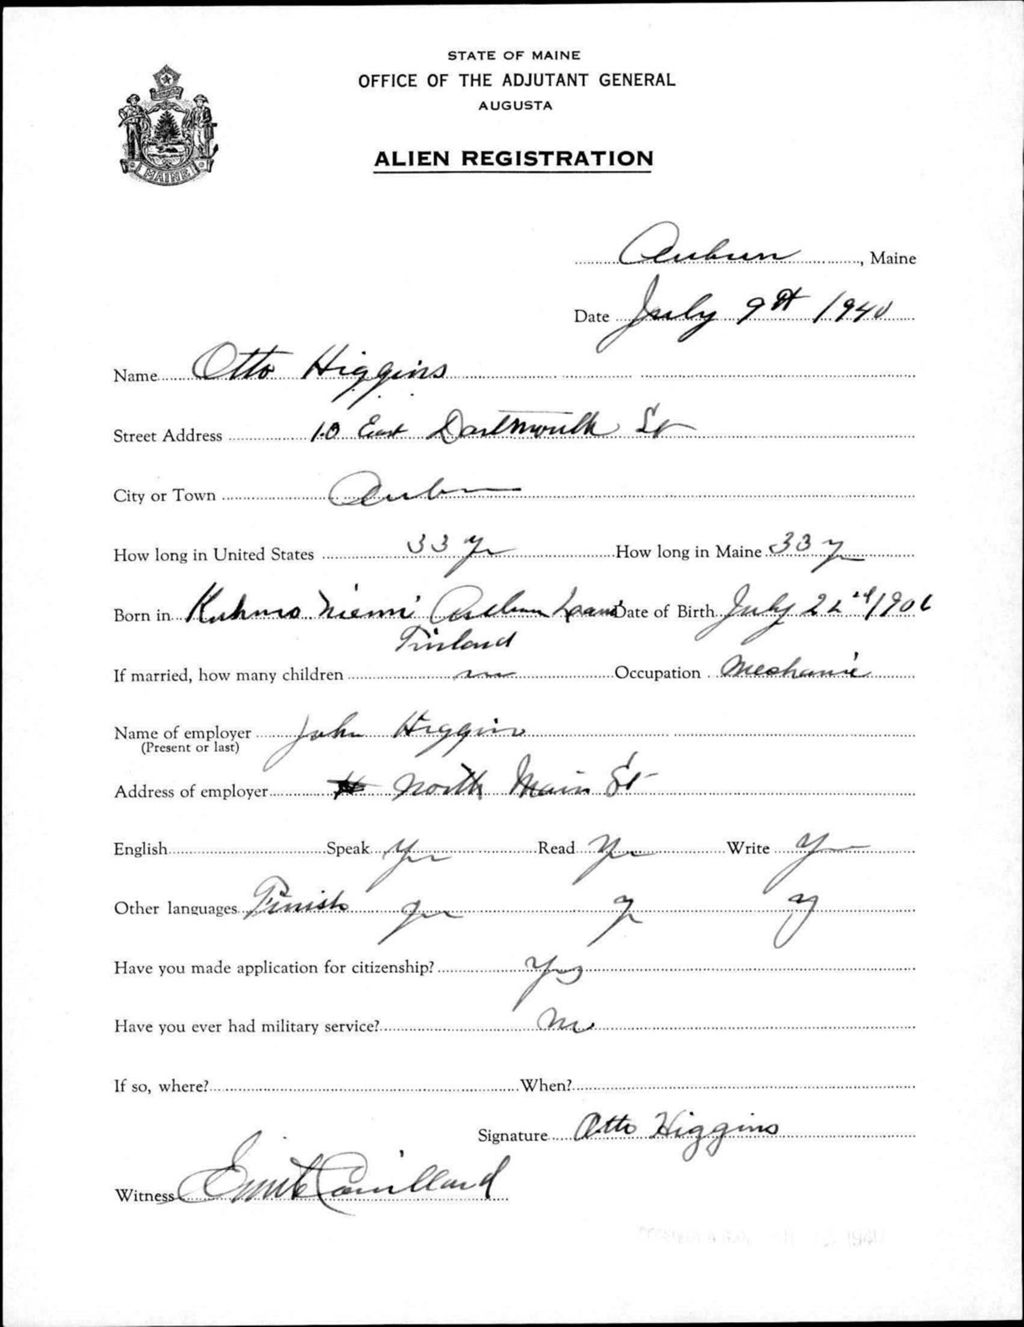 STATE OF MAINE
OFFICE OF THE ADJUTANT GENERAL
AUGUSTA
MAINE
ALIEN REGISTRATION
Auburn, Maine
Date July 9th 1940
Name Otto Higgins
Street Address 10 East Dartmouth St
City or Town Auburn
How long in United States 33 yr How long in Maine 33 yr
Born in Kuhmo Niemi Date of Birth July 22nd 1906
Finland
If married, how many children no Occupation Mechanic
Name of employer John Higgins
(Present or last)
Address of employer North Main St
English Speak Yes Read Yes Write Y
Other languages Finish yes y y
Have you made application for citizenship? Yes
Have you ever had military service? No
If so, where? When?
Signature Otto Higgins
Witness Emile Couillard